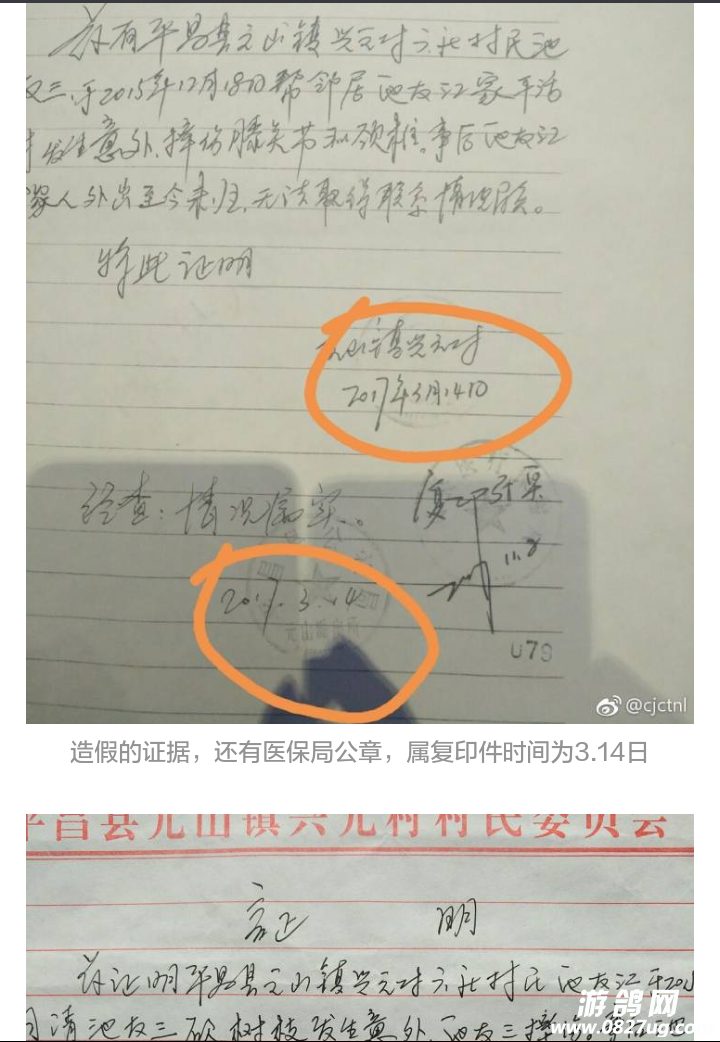 兹有平昌县元山镇兴元村六社村民池
友三,于2015年12月18日帮邻居池友江家干活
时发生意外,摔伤膝关节和颈椎。事后池友江
家人外出至今未归,无法取得联系情况属实。
特此证明
元山镇兴元村
2017年3月14日
经查:情况属实。
复印件
11.8
2017.3.14
元山派出所
079
@cjctnl
造假的证据，还有医保局公章，属复印件时间为3.14日
平昌县元山镇兴元村村民委员会
证 明
兹证明平昌县元山镇兴元村六社村民池友江于201
月请池友三砍树枝发生意外,池友三摔
游鸽网
www.0827ug.com